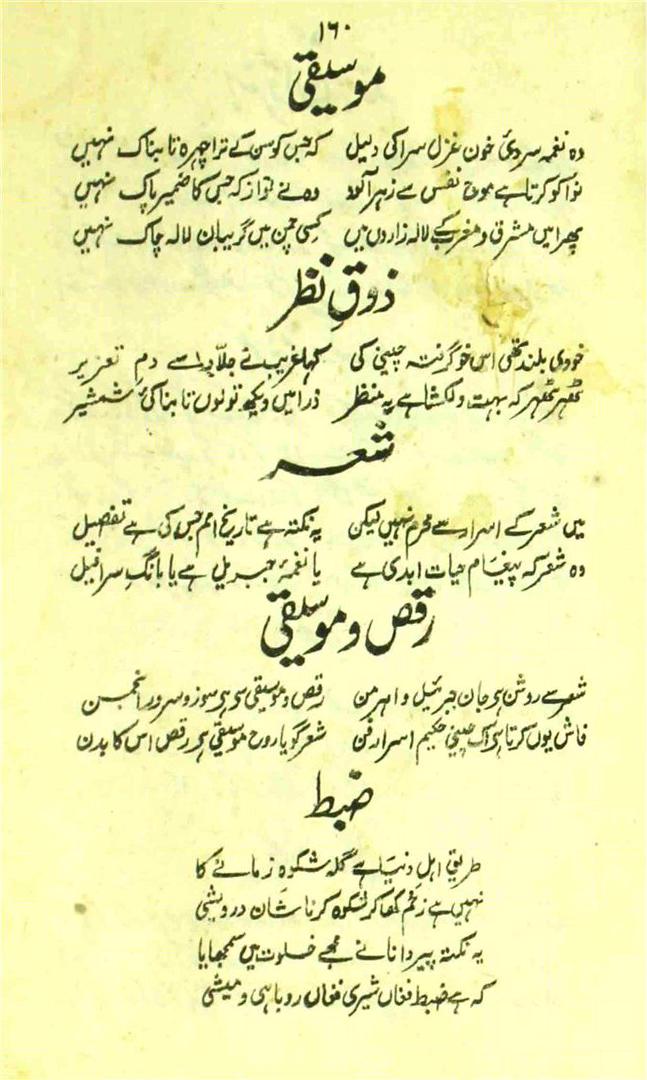 ١٦٠
موسیقی
وہ نغمہ سردیٔ خون غزل سرا کی دلیل    کہ جس کو سن کے ترا چہرہ تابناک نہیں
نوا کو کرتا ہے موج نفس سے زہر آلود    وہ نے نواز کہ جس کا ضمیر پاک نہیں
پھرا میں مشرق و مغرب کے لالہ زاروں میں    کسی چمن میں گریبان لالہ چاک نہیں
ذوقِ نظر
خودی بلند تھی اس خوں گرفتہ چینی کی    کہا غریب نے جلاّد سے دم تعزیر
ٹھہر ٹھہر کہ بہت دلکشا ہے یہ منظر    ذرا میں دیکھ تو لوں تابناکیٔ شمشیر
شعر
میں شعر کے اسرار سے محرم نہیں لیکن    یہ نکتہ ہے تاریخ امم جس کی ہے تفصیل
وہ شعر کہ پیغام حیات ابدی ہے    یا نغمۂ جبریل ہے یا بانگِ سرافیل
رقص و موسیقی
شعر سے روشن ہی جان جبرئیل و اہرمن    رقص و موسیقی سی ہی سوز و سرور انجمن
فاش یوں کرتا ہی اک چینی حکیم اسرار فن    شعر گویا روح موسیقی ہی رقص اس کا بدن
ضبط
طریقِ اہلِ دنیا ہے گلہ شکوہ زمانے کا
نہیں ہے زخم کھا کر شکوہ کرنا شان درویشی
یہ نکتہ پیر دانا نے مجھے خلوت میں سمجھایا
کہ ہے ضبط فغاں شیری فغاں روباہی و میشی